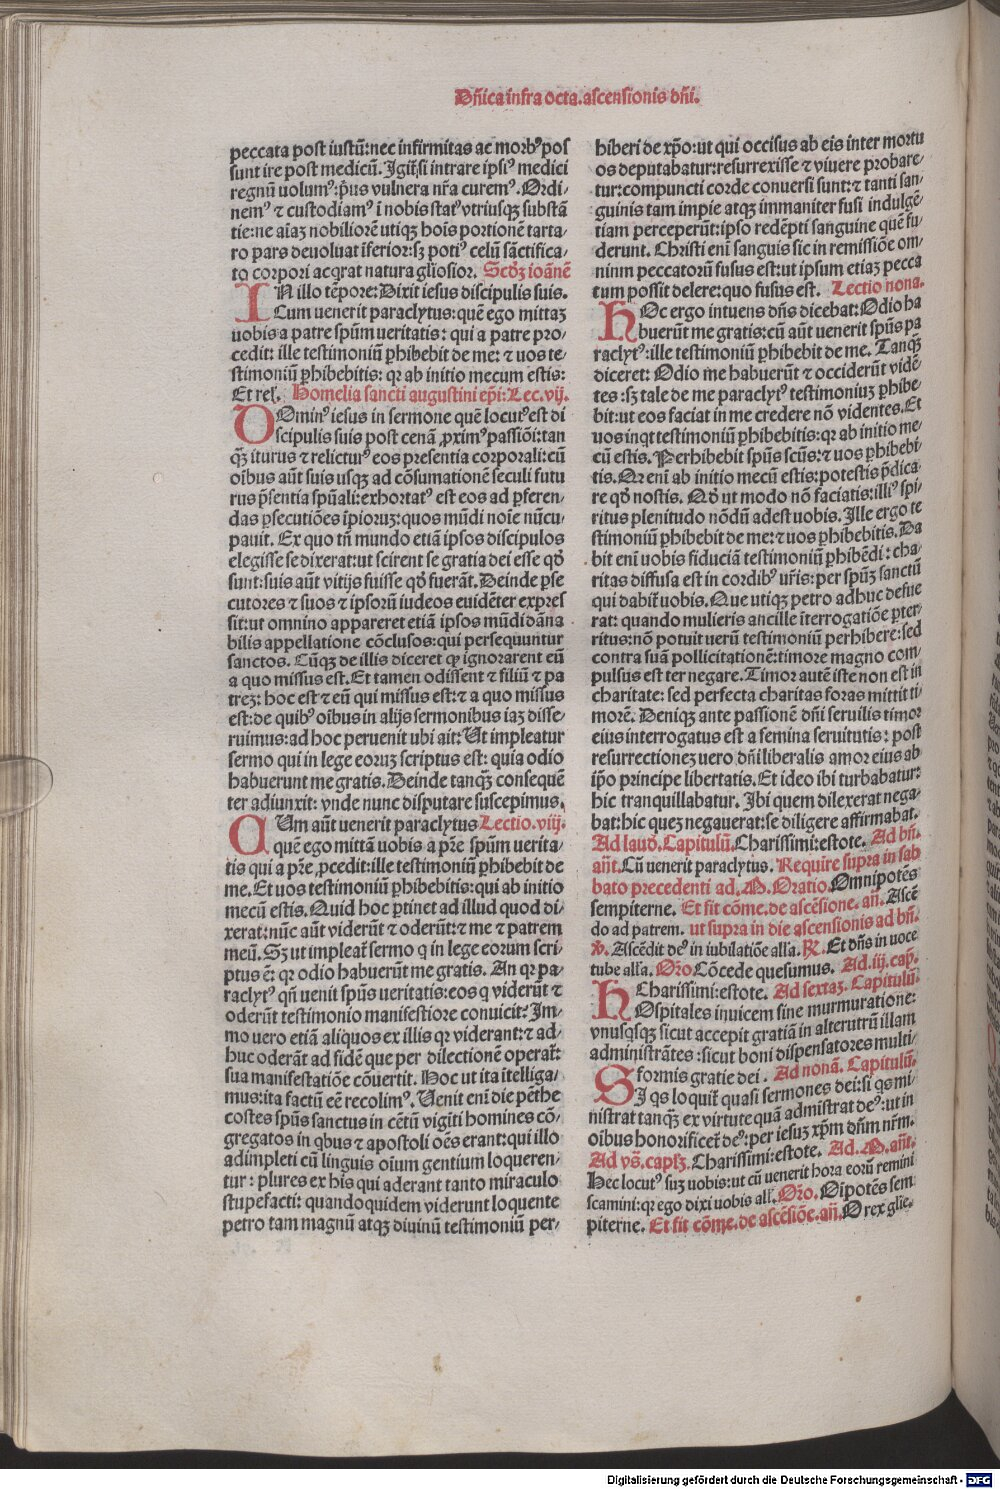 Dñica infra octa. ascensionis dñi.
peccata post iustũ: nec infirmitas ac morbꝰ pos
sunt ire post medicũ. Igit̃ si intrare ipsiꝰ medici
regnũ uolumꝰ: pꝰus vulnera nr̃a curemꝰ. Ordi⸗
nemꝰ ⁊ custodiamꝰ ĩ nobis statꝰ vtriusqꝫ substã
tie: ne aiaꝫ nobiliorẽ utiqꝫ hois portionẽ tarta⸗
ro pars deuoluat iferior: sꝫ potiꝰ celũ sãctifica⸗
to corpori acqrat natura gl̃iosior. Scd̃ꝫ ioãnẽ
IN illo tẽpore: Dixit iesus discipulis suis.
Cum uenerit paraclytus: quẽ ego mittaꝫ
uobis a patre spũm ueritatis: qui a patre pro⸗
cedit: ille testimoniũ ꝑhibebit de me: ⁊ uos te⸗
stimoniũ ꝑhibebitis: qꝛ ab initio mecum estis:
Et rel. Homelia sancti augustini ep̃i: Lec. vij.
DOminꝰ iesus in sermone quẽ locutꝰ est di
scipulis suis post cenã ꝓximꝰ passiõi: tan
qꝫ̃ iturus ⁊ relicturꝰ eos presentia corporali: cũ
oĩbus aũt suis usqꝫ ad cõsumationẽ seculi futu
rus p̃sentia spũali: exhortatꝰ est eos ad ꝑferen⸗
das ꝑsecutiões ĩpioruꝫ: quos mũdi noĩe nũcu⸗
pauit. Ex quo tñ mundo etiã ipsos discipulos
elegisse se dixerat: ut scirent se gratia dei esse qd̃
sunt: suis aũt vitijs fuisse qd̃ fuerãt. Deinde ꝑse
cutores ⁊ suos ⁊ ipsorũ iudeos euidẽter expres
sit: ut omnino appareret etiã ipsos mũdi dãna
bilis appellatione cõclusos: qui persequuntur
sanctos. Cũqꝫ de illis diceret qꝙ ignorarent eũ
a quo missus est. Et tamen odissent ⁊ filiũ ⁊ pa
treꝫ: hoc est ⁊ eũ qui missus est: ⁊ a quo missus
est: de quibꝰ oĩbus in alijs sermonibus iaꝫ disse⸗
ruimus: ad hoc peruenit ubi ait: Ut impleatur
sermo qui in lege eoruꝫ scriptus est: quia odio
habuerunt me gratis. Deinde tanqꝫ̃ consequẽ
ter adiunxit: vnde nunc disputare suscepimus.
CUm aũt uenerit paraclytus Lectio. viij.
quẽ ego mittã uobis a pr̃e spũm uerita⸗
tis qui a pr̃e ꝓcedit: ille testimoniũ ꝑhibebit de
me. Et uos testimoniũ ꝑhibebitis: qui ab initio
mecũ estis. Quid hoc ꝑtinet ad illud quod di⸗
xerat: nũc aũt viderũt ⁊ oderũt: ⁊ me ⁊ patrem
meũ. Sꝫ ut impleat̃ sermo q in lege eorum scri⸗
ptus ẽ: qꝛ odio habuerũt me gratis. An qꝛ pa⸗
raclytꝰ qñ venit spũs ueritatis: eos q viderũt ⁊
oderũt testimonio manifestiore conuicit: Im⸗
mo uero etiã aliquos ex illis qꝛ viderant: ⁊ ad⸗
huc oderãt ad fidẽ que per dilectionẽ operat̃:
sua manifestatiõe cõuertit. Hoc ut ita ĩtelliga⸗
mus: ita factũ eẽ recolimꝰ. Uenit eni die pẽthe
costes spũs sanctus in cẽtũ vigĩti homines cõ⸗
gregatos in qbus ⁊ apostoli oẽs erant: qui illo
adimpleti cũ linguis oium gentium loqueren⸗
tur: plures ex his qui aderant tanto miraculo
stupefacti: quandoquidem viderunt loquente
petro tam magnũ atqꝫ diuinũ testimoniũ per⸗
hiberi de xp̃o: ut qui occisus ab eis inter mortu
os deputabatur: resurrexisse ⁊ vivere probare⸗
tur: compuncti corde conuersi sunt: ⁊ tanti san⸗
guinis tam impie atqꝫ immaniter fusi indulgẽ⸗
tiam perceperũt: ipso redẽpti sanguine quẽ fu⸗
derunt. Christi eni sanguis sic in remissiõe om⸗
nium peccatorũ fusus est: ut ipsum etiaꝫ pecca
tum possit delere: quo fusus est. Lectio nona.
HOc ergo intuens dñs dicebat: Odio ha
buerũt me gratis: cũ aũt venerit spũs pa
raclytꝰ: ille testimoniũ ꝑhibebit de me. Tanqꝫ̃
diceret: Odio me habuerũt ⁊ occiderũt vidẽ⸗
tes: sꝫ tale de me paraclytꝰ testimoniuꝫ ꝑhibe⸗
bit: ut eos faciat in me credere nõ videntes. Et
uos inqt testimoniũ ꝑhibebitis: qꝛ ab initio me⸗
cũ estis. Perhibebit spũs scũs: ⁊ uos ꝑhibebi⸗
tis. Qꝛ eni ab initio mecũ estis: potestis p̃dica⸗
re qd̃ nostis. Qd̃ ut modo nõ faciatis: illiꝰ spi⸗
ritus plenitudo nõdũ adest uobis. Ille ergo te
stimoniũ ꝑhibebit de me: ⁊ uos ꝑhibebitis. Da
bit eni uobis fiduciã testimoniũ ꝑhibẽdi: cha⸗
ritas diffusa est in cordibꝰ ur̃is: per spũꝫ sanctũ
qui dabit̃ uobis. Que utiqꝫ petro adhuc defue
rat: quando mulieris ancille ĩterrogatiõe ꝑter⸗
ritus: nõ potuit uerũ testimoniũ perhibere: sed
contra suã pollicitationẽ: timore magno com⸗
pulsus est ter negare. Timor autẽ iste non est in
charitate: sed perfecta charitas foras mittit ti⸗
morẽ. Deniqꝫ ante passionẽ dñi seruilis timor
eius interrogatus est a femina seruitutis: post
resurrectioneꝫ vero dñi liberalis amor eius ab
ip̃o principe libertatis. Et ideo ibi turbabatur:
hic tranquillabatur. Ibi quem dilexerat nega⸗
bat: hic queꝫ negauerat: se diligere affirmabat.
Ad laud. Capitulũ. Charissimi: estote. Ad bñ.
añt. Cũ uenerit paraclytus. Require supra in sab
bato precedenti ad. M. Oratio. Omnipotẽs
sempiterne. Et fit cõme. de ascẽsione. añ. Ascẽ
do ad patrem. ut supra in die ascensionis ad bñ.
℣. Ascẽdit deꝰ in iubilatiõe alla. ℟. Et dñs in uoce
tube alla. Oro. Cõcede quesumus. Ad. iij. cap̃.
Charissimi: estote. Ad sextaꝫ. Capitulũ.
HOspitales inuicem sine murmuratione:
vnusqsqꝫ sicut accepit gratiã in alterutrũ illam
administrãtes: sicut boni dispensatores multi⸗
formis gratie dei. Ad nonã. Capitulũ.
SI qs loquit̃ quasi sermones dei: si qs mi⸗
nistrat tanqꝫ̃ ex virtute quã admistrat deꝰ: ut in
oĩbus honorificet̃ deꝰ: per iesuꝫ xp̃m dñm nr̃m.
Ad vs̃. capl̃ꝫ. Charissimi: estote. Ad. M. añt.
Hec locutꝰ suꝫ uobis: ut cũ venerit hora eorũ remini
scamini: qꝛ ego dixi uobis all. Oro. Oipotẽs sem
piterne. Et fit cõme. de ascẽsiõe. añ. O rex glie.
Digitalisierung gefördert durch die Deutsche Forschungsgemeinschaft - DFG